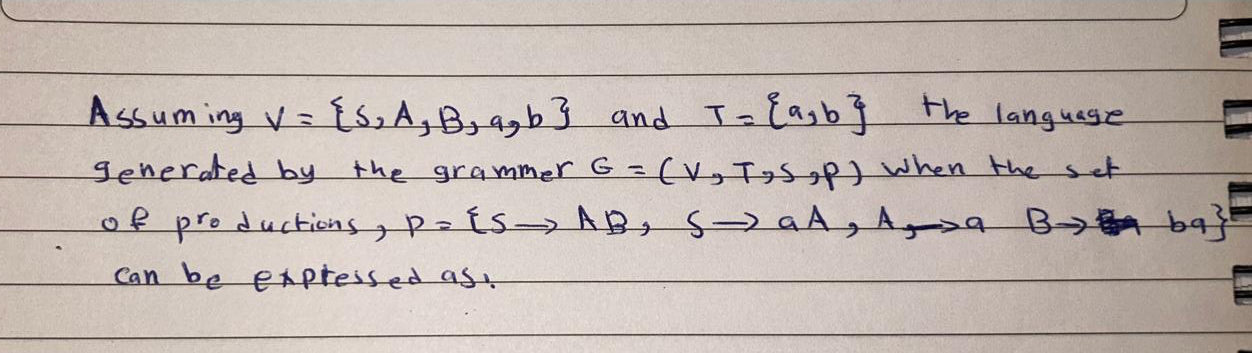 Assuming V = {S, A, B, a, b} and T = {a, b} the language
generated by the grammer G = (V, T, S, P) when the set
of productions, P = {S → AB, S → aA, A → a B → ba}
can be expressed as.